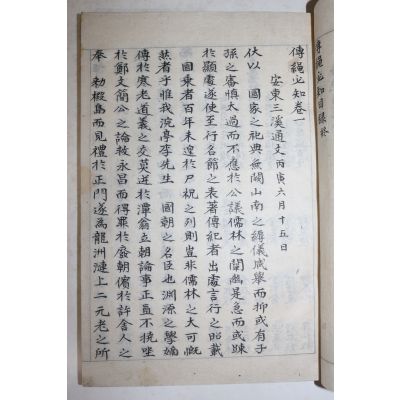 傳繩必知目錄終
傳繩必知卷一
安東三溪通文丙寅六月十五日
伏以 國家之祀典無闕山南之縟儀咸擧而抑或有子
孫之審愼太過而不應於公議儒林之闡幽是急而或踈
於顯處遂使至行名節之表著傳紀者出處言行之昭載
國乘者百年未遑於尸祝之列則豈非儒林之大可慨
㷀者乎惟我浣亭李先生 國朝之名臣也淵源之學嫡
傳於寒老道義之交莫逆於潭翁立朝論事正直不撓
於鄭文簡公之論救永昌而得罪於廢朝儐於許舍人之
奉 勅椵島而見禮於正門遂爲龍洲漣上二元老之所